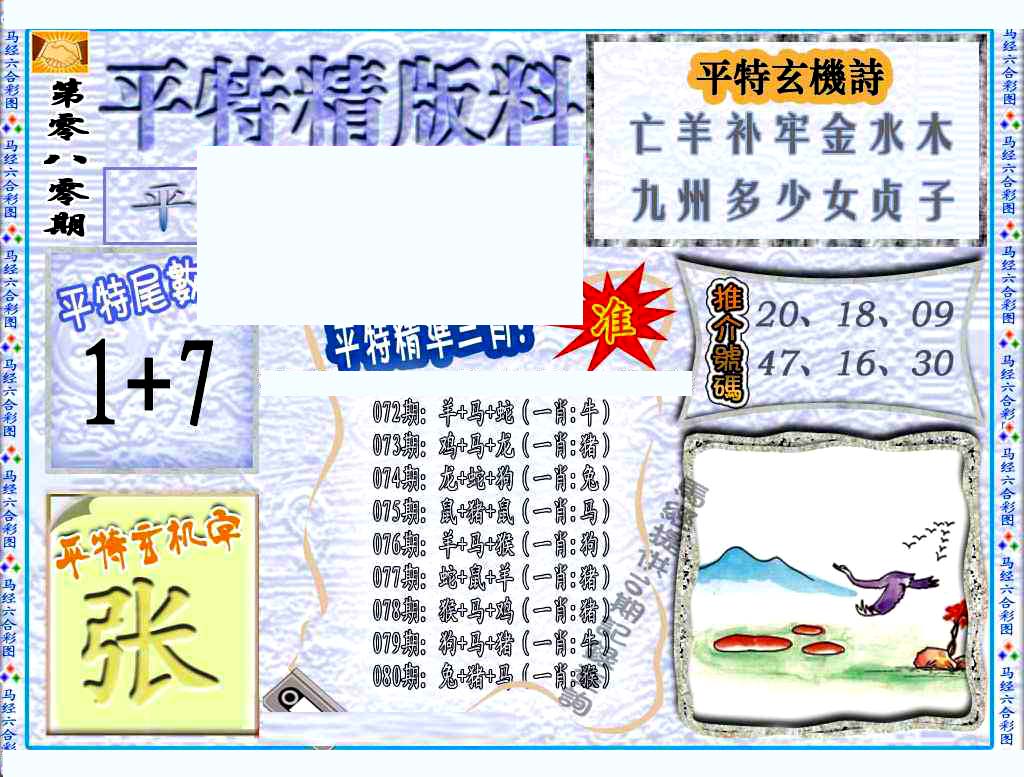 第零八零期
平特精版料
平
平特玄機詩
亡羊补牢金水木
九州多少女贞子
平特尾數
1+7
平特精準三肖!
准
推介號碼
20、18、09
47、16、30
072期: 羊+马+蛇 (一肖:牛)
073期: 鸡+马+龙 (一肖:猪)
074期: 龙+蛇+狗 (一肖:兔)
075期: 鼠+猪+鼠 (一肖:马)
076期: 羊+马+猴 (一肖:狗)
077期: 蛇+鼠+羊 (一肖:猪)
078期: 猴+马+鸡 (一肖:猪)
079期: 狗+马+猪 (一肖:牛)
080期: 兔+猪+马 (一肖:猴)
平特玄机字
张
马经六合彩图 马经六合彩图 马经六合彩图 马经六合彩图 马经六合彩图 马经六合彩图 马经六合彩图
马经六合彩图 马经六合彩图 马经六合彩图 马经六合彩图 马经六合彩图 马经六合彩图 马经六合彩图